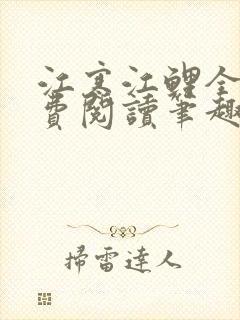 江寒江鯉全
費閱讀筆趣
掃雷達人